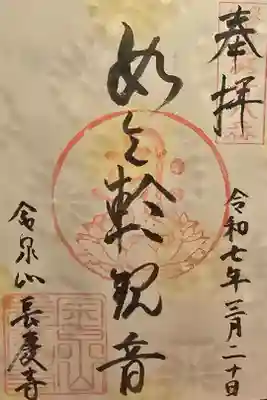 奉拝
令和七年三月二十日
如意輪観音
金泉山
長慶寺